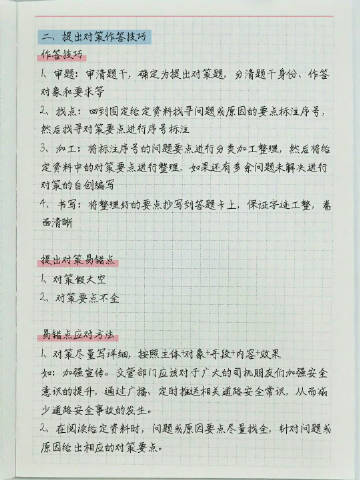 二、提出对策作答技巧
作答技巧
1、审题：审清题干，确定为提出对策题，分清题干身份、作答
对象和要求等
2、找点：回到固定给定资料找寻问题或原因的要点标注序号，
然后找寻对策要点进行序号标注
3、加工：将标注序号的问题要点进行分类加工整理，然后将给
定资料中的对策要点进行整理，如果还有多余问题未解决进行
对策的自创编写
4、书写：将整理好的要点抄写到答题卡上，保证字迹工整，卷
面清晰
提出对策易错点
1、对策假大空
2、对策要点不全
易错点应对方法
1、对策尽量写详细，按照主体+对象+手段+内容+效果
如：加强宣传。交管部门应该对于广大的司机朋友们加强安全
意识的提升，通过广播，定时推送相关道路安全常识，从而减
少道路安全事故的发生。
2、在阅读给定资料时，问题或原因要点尽量找全，针对问题或
原因给出相应的对策要点。